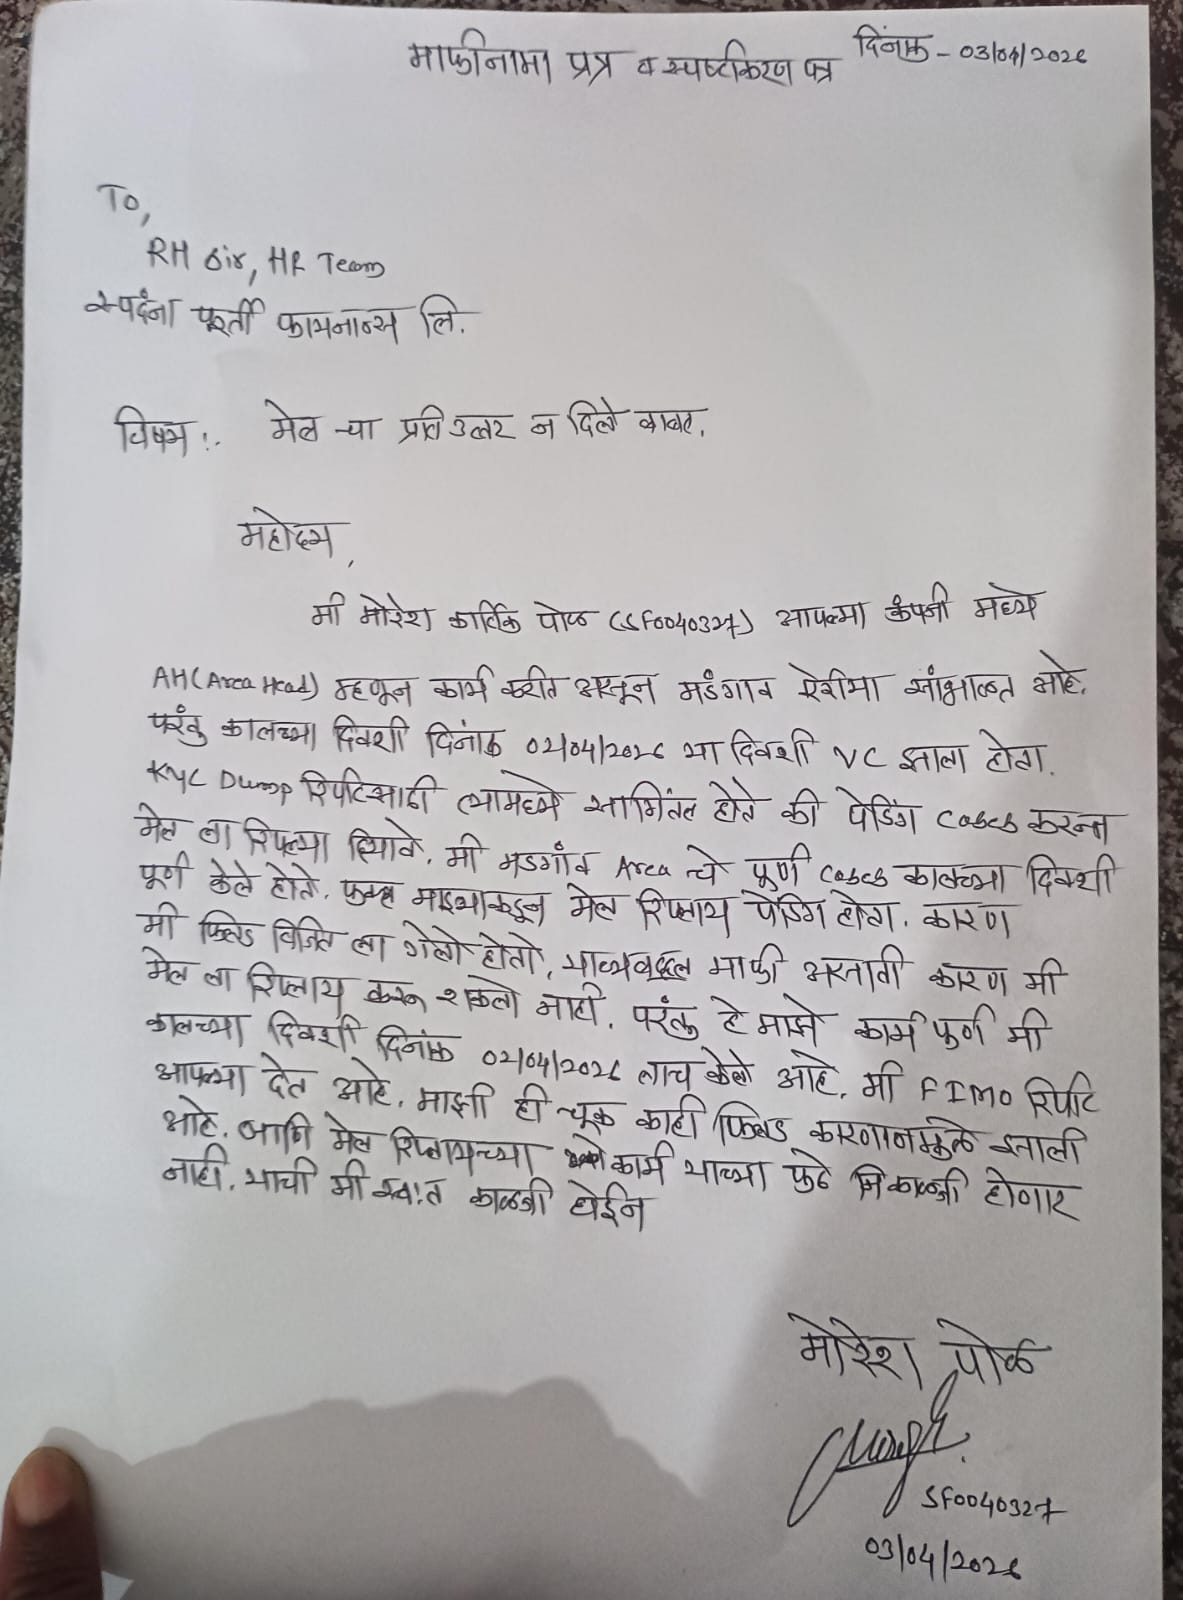 माफीनामा पत्र व स्पष्टीकरण पत्र दिनांक - 03/04/2026
To,
RH Sir, HR Team
स्पदंना फूर्ती फायनान्स लि.
विषय :. मेल च्या प्रतिउत्तर न दिले बाबत.
महोदय,
मी मोरेश कार्तिक पोळ (SF0040327) आपल्या कंपनी मध्ये
AH(Area Head) म्हणून कार्य करीत असून मडंगाव ऐरीया सांभाळत आहे.
परंतु कालच्या दिवशी दिनांक 02/04/2026 या दिवशी VC झाला होता.
KYC Dump रिपोटसाठी त्यामध्ये सामिंतल होते की पेडिंग Cases करून
मेल ला रिप्लाय दियावे. मी मडगाँव Area चे पूर्ण Cases कालच्या दिवशी
पूर्ण केले होते. फक्त माझ्याकडून मेल रिप्लाय पेंडिग होता. कारण
मी फिल्ड विजिट ला गेलो होतो, याच्यबद्दल माफी असतावी कारण मी
मेल ला रिप्लाय करू शकलो नाही. परंतु हे माझे कार्य पूर्ण मी
कालच्या दिवशी दिनांक 02/04/2026 लाच केले आहे. मी FIMO रिपोट
आपल्या देत आहे. माझी ही चूक काही फिल्ड कारणानमुळे झाली
आहे. आणि मेल रिप्लायच्या कार्य याच्या पुढे निकाळजी होणार
नाही. याची मी स्वःत काळजी घेईन
मोरेश पोळ
SF0040327
03/04/2026